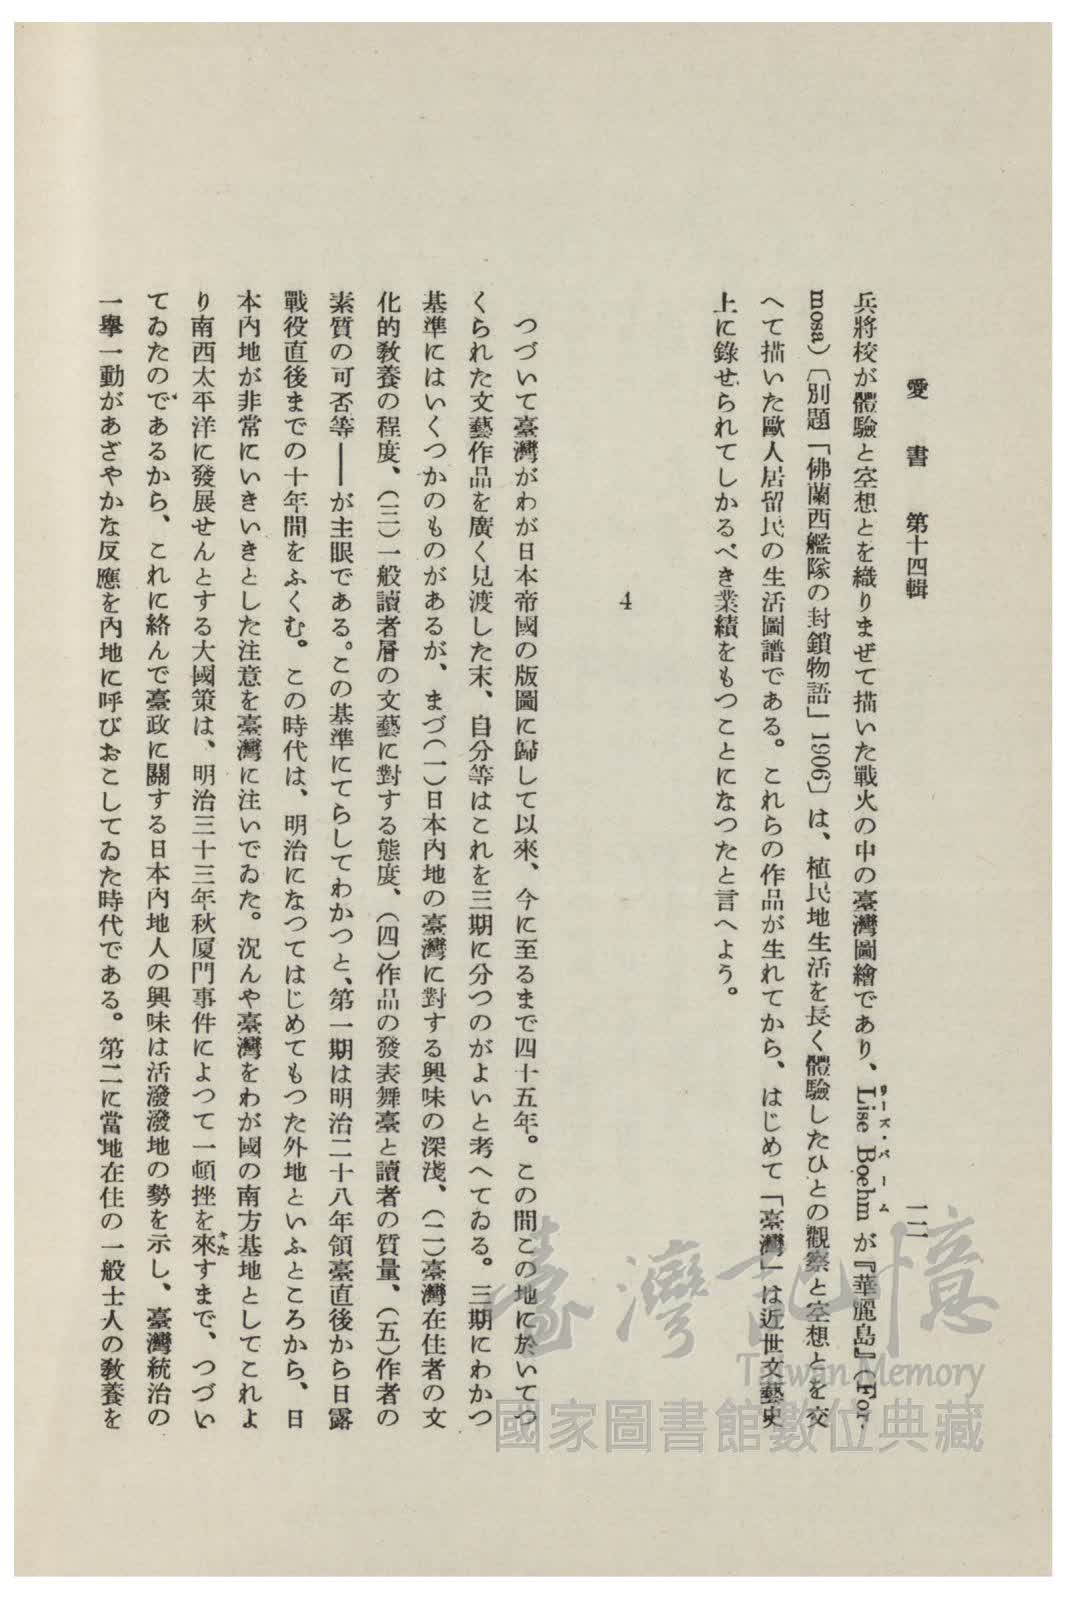 愛書 第十四輯 一二
兵將校が體驗と空想とを織りまぜて描いた戰火の中の臺灣圖繪であり、Lise Boehm が『華麗島』(For-
リーズ・ベーム
mosa)〔別題「佛蘭西艦隊の封鎖物語」1906〕は、植民地生活を長く體驗したひとの觀察と空想とを交
へて描いた歐人居留民の生活圖譜である。これらの作品が生れてから、はじめて「臺灣」は近世文藝史
上に錄せられてしかるべき業績をもつことになつたと言へよう。
4
つづいて臺灣がわが日本帝國の版圖に歸して以來、今に至るまで四十五年。この間この地に於いてつ
くられた文藝作品を廣く見渡した末、自分等はこれを三期に分つのがよいと考へてゐる。三期にわかつ
基準にはいくつかのものがあるが、まづ(一)日本內地の臺灣に對する興味の深淺、(二)臺灣在住者の文
化的敎養の程度、(三)一般讀者層の文藝に對する態度、(四)作品の發表舞臺と讀者の質量、(五)作者の
素質の可否等――が主眼である。この基準にてらしてわかつと、第一期は明治二十八年領臺直後から日露
戰役直後までの十年間をふくむ。この時代は、明治になつてはじめてもつた外地といふところから、日
本內地が非常にいきいきとした注意を臺灣に注いでゐた。況んや臺灣をわが國の南方基地としてこれよ
り南西太平洋に發展せんとする大國策は、明治三十三年秋厦門事件によつて一頓挫を來すまで、つづい
きた
てゐたのであるから、これに絡んで臺政に關する日本內地人の興味は活潑潑地の勢を示し、臺灣統治の
一擧一動があざやかな反應を內地に呼びおこしてゐた時代である。第二に當地在住の一般士人の敎養を
臺灣記憶
Taiwan Memory
國家圖書館數位典藏